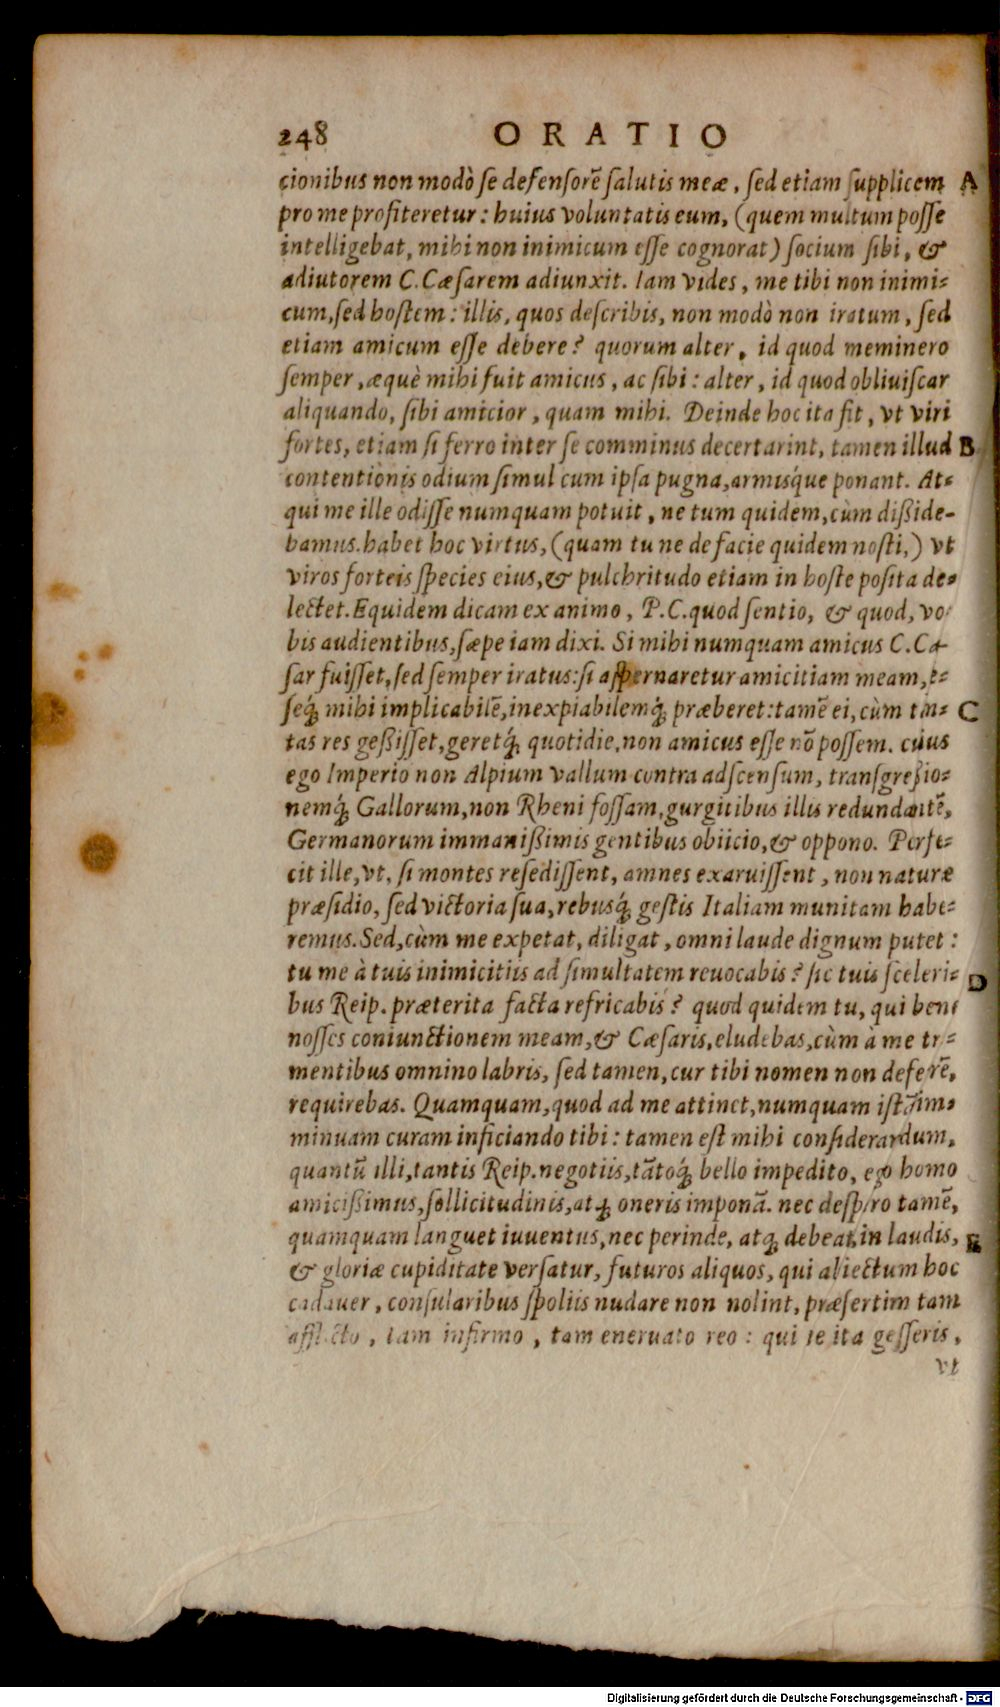 248 ORATIO
cionibus non modò se defensorẽ salutis meæ, sed etiam supplicem A
pro me profiteretur: huius voluntatis eum, (quem multum posse
intelligebat, mihi non inimicum esse cognorat) socium sibi, &
adiutorem C. Cæsarem adiunxit. Iam vides, me tibi non inimi-
cum, sed hostem: illis, quos describis, non modò non iratum, sed
etiam amicum esse debere? quorum alter, id quod meminero
semper, æquè mihi fuit amicus, ac sibi: alter, id quod obliuiscar
aliquando, sibi amicior, quam mihi. Deinde hoc ita fit, vt viri
fortes, etiam si ferro inter se comminus decertarint, tamen illud B
contentionis odium simul cum ipsa pugna, armisq́ue ponant. At-
qui me ille odisse numquam potuit, ne tum quidem, cùm dißide-
bamus. habet hoc virtus, (quam tu ne de facie quidem nosti,) vt
viros forteis species eius, & pulchritudo etiam in hoste posita de-
lectet. Equidem dicam ex animo, P.C. quod sentio, & quod, vo-
bis audientibus, sæpe iam dixi. Si mihi numquam amicus C. Cæ-
sar fuisset, sed semper iratus: si aspernaretur amicitiam meam,
seq́ mihi implicabilẽ, inexpiabilemq́ præberet: tamẽ ei, cùm tan- C
tas res geßisset, geretq́ quotidie, non amicus esse nõ possem. cuius
ego Imperio non Alpium vallum contra adscensum, transgreßio-
nemq́ Gallorum, non Rheni fossam, gurgitibus illis redundantẽ,
Germanorum immanißimis gentibus obiicio, & oppono. Perfe-
cit ille, vt, si montes resedissent, amnes exaruissent, non naturæ
præsidio, sed victoria sua, rebusq́ gestis Italiam munitam habe-
remus. Sed, cùm me expetat, diligat, omni laude dignum putet:
tu me à tuis inimicitiis ad simultatem reuocabis? sic tuis sceleri- D
bus Reip. præterita facta refricabis? quod quidem tu, qui bene
nosses coniunctionem meam, & Cæsaris, eludebas, cùm a me tre-
mentibus omnino labris, sed tamen, cur tibi nomen non deferrẽ,
requirebas. Quamquam, quod ad me attinet, numquam istã im-
minuam curam inficiando tibi: tamen est mihi considerandum,
quantũ illi, tantis Reip. negotiis, tãtoq́ bello impedito, ego homo
amicißimus, sollicitudinis, atq; oneris imponã. nec despero tamẽ,
quamquam languet iuuentus, nec perinde, atq; debeat, in laudis, E
& gloriæ cupiditate versatur, futuros aliquos, qui abiectum hoc
cadauer, consularibus spoliis nudare non nolint, præsertim tam
afflicto, tam infirmo, tam eneruato reo: qui te ita gesseris,
vt
Digitalisierung gefördert durch die Deutsche Forschungsgemeinschaft - DFG